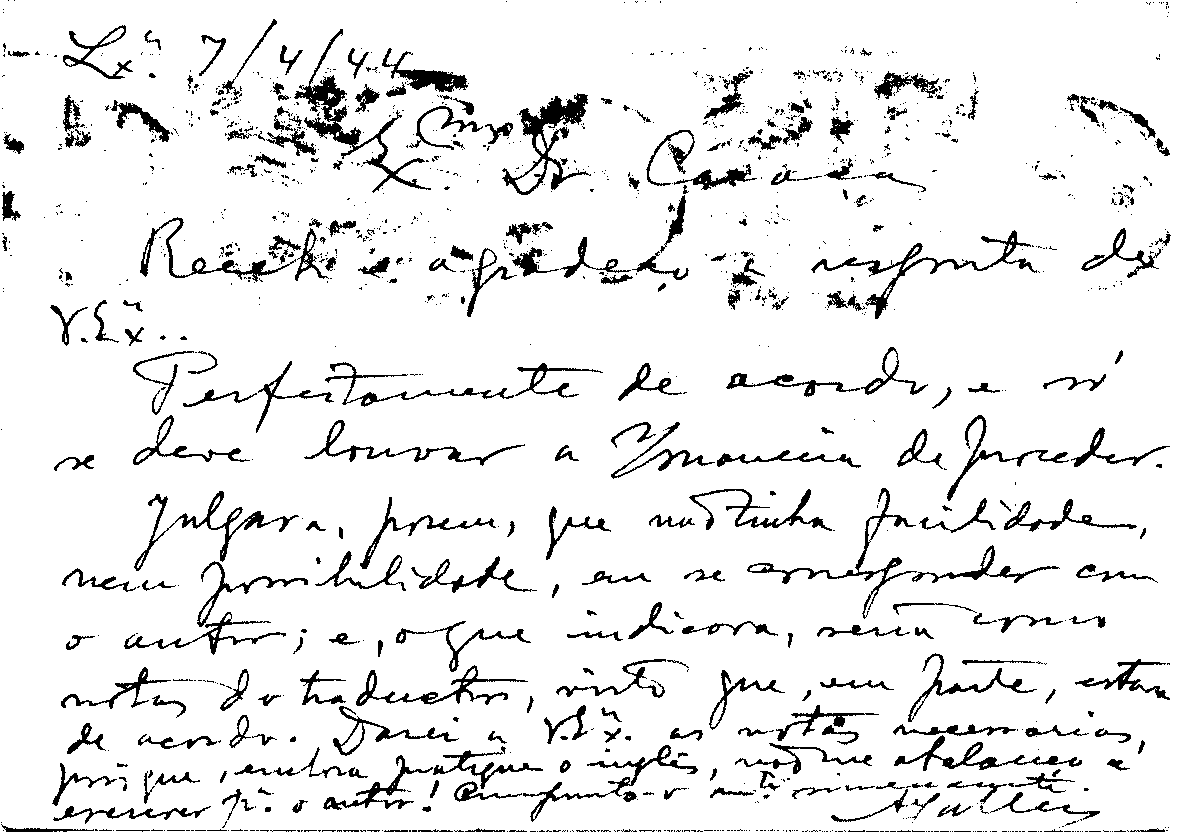 Lxª. 7/4/44
Exmo. Dr. Caraça
Recebi e agradeço a resposta de
V. Exª..
Perfeitamente de acordo, e só
se deve louvar a maneira de proceder.
Julgara, porem, que não tinha facilidade,
nem possibilidade, em se corresponder com
o autor; e, o que indicara, seria como
notas do traductor, visto que, em parte, estava
de acordo. Darei a V. Exª. as notas necessarias,
pois que, embora pratique o inglês, não me abalanço a
escrever pª. o autor! Cumprimenta-o mtº. sinceramente.